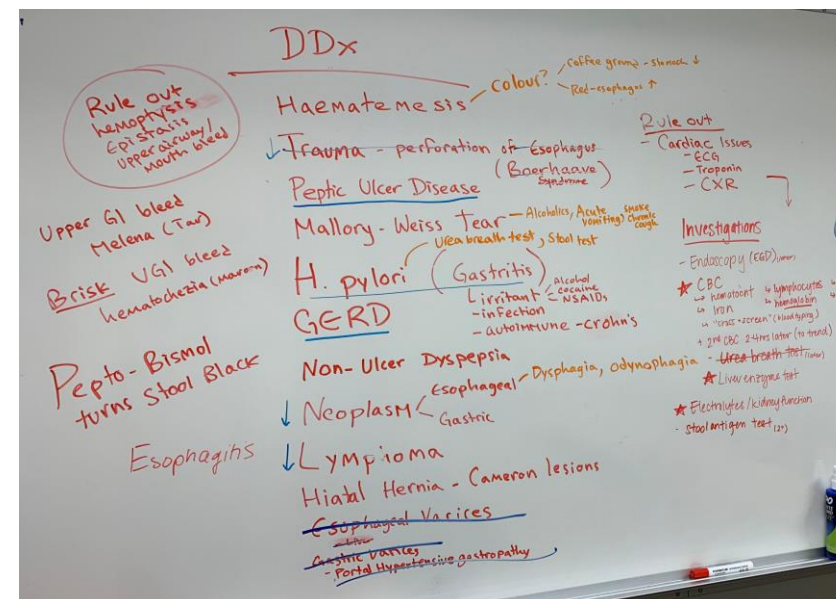 DDx
Rule out
hemoptysis
Epistaxis
upper airway/
mouth bleed
Upper GI bleed
Melena (Tar)
Brisk UGI bleed
hematochezia (maroon)
Pepto-Bismol
turns Stool Black
Esophagitis
Haematemesis - colour?
Coffee ground - stomach ↓
Red - esophagus ↑
↓ Trauma - perforation of Esophagus
(Boerhaave
Syndrome)
Peptic Ulcer Disease
Mallory-Weiss Tear - Alcoholics, Acute vomiting, smoke chronic cough
Urea breath test, Stool test
H. pylori (Gastritis)
irritant - Alcohol
cocaine
NSAIDs
- infection
- autoimmune - crohn's
GERD
Non-Ulcer Dyspepsia
↓ Neoplasm
Esophageal - Dysphagia, odynophagia
Gastric
↓ Lympioma
Hiatal Hernia - Cameron lesions
Esophageal Varices
Gastric Varices
- Portal Hypertensive gastropathy
Rule out
- Cardiac Issues
- ECG
- Troponin
- CXR
Investigations
- Endoscopy (EGD)
★ CBC
↳ lymphocytes
↳ Iron ↳ hemoglobin
↳ "cross-screen" (blood typing)
+ 2nd CBC 2-4hrs later (to trend)
- Urea breath test (later)
★ Liver enzyme test
★ Electrolytes/kidney function
- Stool antigen test (2°)